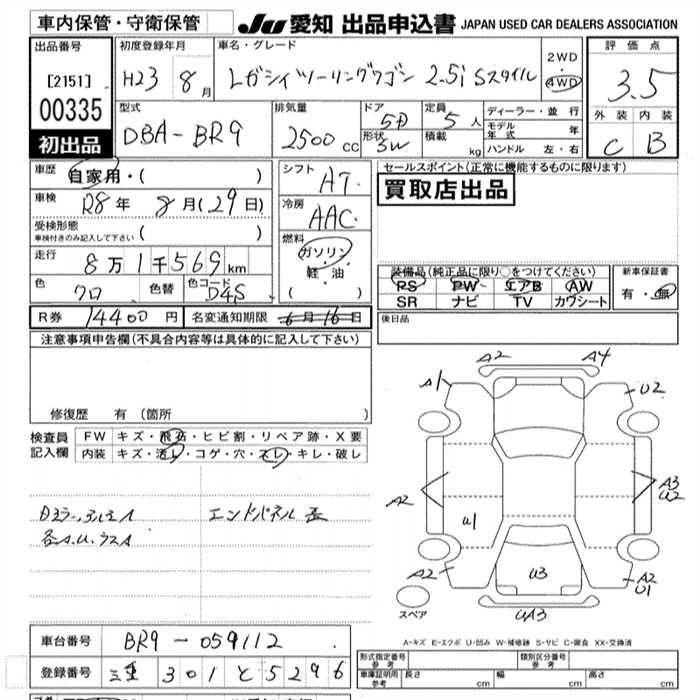 車内保管・守衛保管
JU 愛知 出品申込書 JAPAN USED CAR DEALERS ASSOCIATION
出品番号
[2151]
00335
初出品
初度登録年月
H23 8月
車名・グレード
レガシィツーリングワゴン 2.5i Sスタイル
2WD
4WD
評価点
3.5
外装 内装
C B
型式
DBA-BR9
排気量
2500 cc
ドア
5D
形状
SW
定員
5人
積載
kg
ディーラー・並行
モデル年式 年
ハンドル 左・右
車歴
自家用・( )
車検
R8年 8月(29日)
受検形態
車検付きのみ記入して下さい ( )
走行
8万1千569km
色
クロ
色替
色コード
D4S
シフト
AT
冷房
AAC
燃料
ガソリン
軽・油
( )
セールスポイント(正常に機能するものに限ります)
買取店出品
装備品(純正品に限り○をつけてください)
PS PW エアB AW
SR ナビ TV カワシート
新車保証書
有・無
後日品
R券 14400円
名変通知期限 6月16日
注意事項申告欄(不具合内容等は具体的に記入して下さい)
修復歴 有(箇所 )
検査員
記入欄
FW キズ・飛石・ヒビ割・リペア跡・X要
内装 キズ・汚レ・コゲ・穴・スレ・キレ・破レ
エンドパネル
各A.U.ウスA
A2 A4
A1 U2
A2
A3
U2
U1
A2
U3
A2
U1
UA3
スペア
A-キズ E-エクボ U-凹み W-補修跡 S-サビ C-腐食 XX-交換済
車台番号
BR9-059112
登録番号
三重 301 と 5296
形式指定番号
参考
類別区分番号
参考
車庫証明用
参考
長さ cm
幅 cm
高さ cm